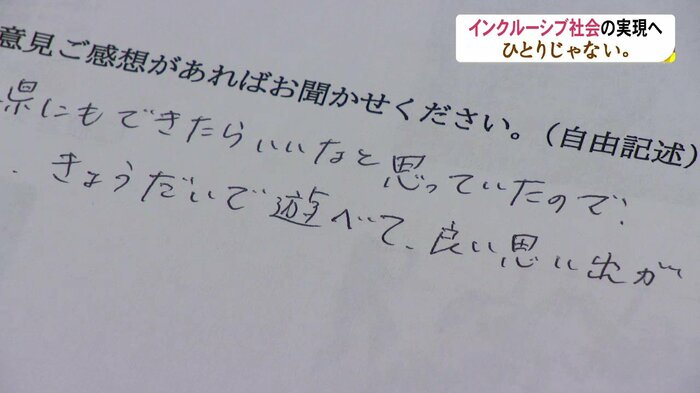 インクルーシブ社会の実現へ
ひとりじゃない。
意見ご感想があればお聞かせください。(自由記述)
県にもできたらいいなと思っていたので、
きょうだいで遊べて、良い思い出が